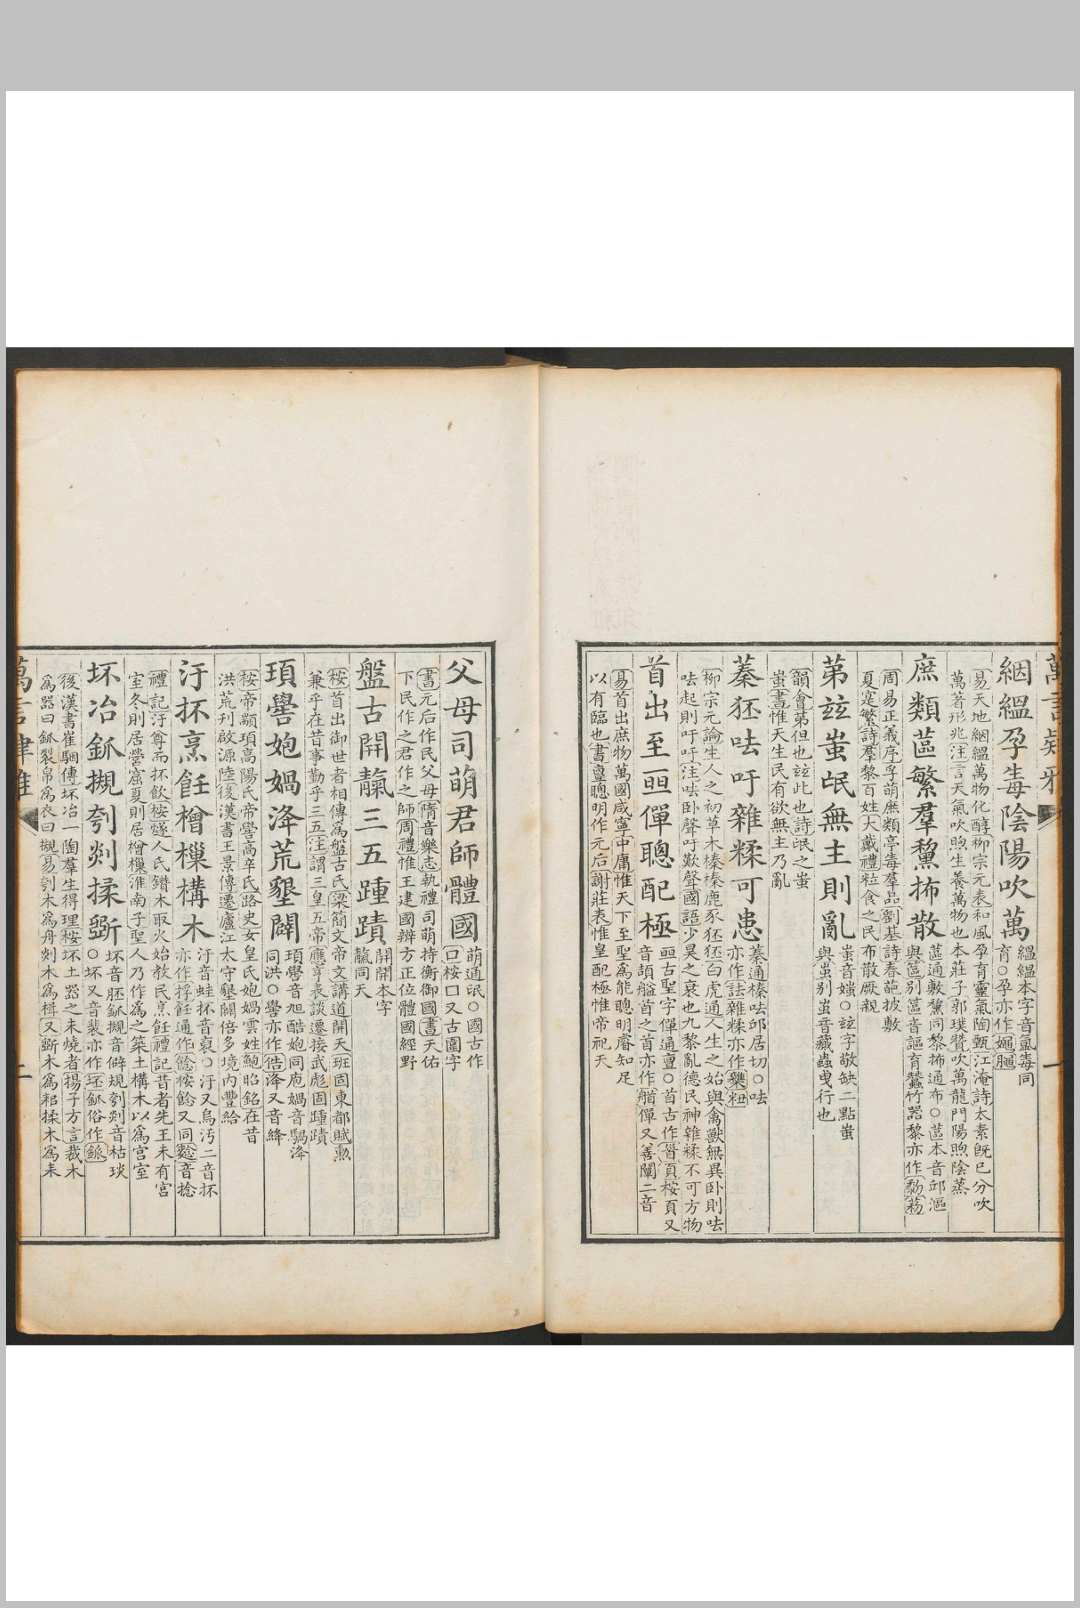 絪縕孕毒陰陽吹萬
縕縕本字音氳毒同
育○孕亦作
易天地絪縕萬物化醇柳宗元表和風孕育靈氣陶甄江淹詩太素既已分吹
萬著形兆注言天氣吹煦生養萬物也本莊子郭璞贊吹萬龍門陽煦陰蒸
庶類蓲繁羣黧抪散
蓲通敷黧同黎抪通布○蓲本音邱漚
周易正義序孚萌庶類亭毒羣品劉基詩春葩披敷
夏寔繁詩羣黎百姓大戴禮粒食之民布散厥親
第玆蚩氓無主則亂
蚩音媸○玆字敬缺二點蚩
與蚩别蚩音蟲曳行也
韻會第但也玆此也詩氓之蚩
蚩書惟天生民有欲無主乃亂
蓁狉呿吁雜糅可患
蓁通榛呿邱居切○呿
柳宗元論生人之初草木榛榛鹿豕狉狉白虎通人生之始與禽獸無異卧則呿
呿起則吁吁注呿卧聲吁歎聲國語少昊之衰也九黎亂德民神雜糅不可方物
首出至亟僤聰配極
易首出庶物萬國咸寧中庸惟天下至聖爲能聰明睿知足
以有臨也書亶聰明作元后謝莊表惟皇配極惟帝祀天
父母司萌君師體國
萌通氓○國古作
囗桉囗又古圍字
書元后作民父母隋音樂志執禮司萌持衡御國書天佑
下民作之君作之師周禮惟王建國辨方正位體國經野
盤古開䕻三五踵蹟
桉首出御世者相傳爲盤古氏梁簡文帝文講道開天班固東都賦勲
兼乎在昔事勤乎三五注謂三皇五帝應亨表談遷接武彪固踵蹟
頊嚳媳媧洚荒墾闢
頊嚳音旭酷媳同庖媧音騧洚
同洪○嚳亦作俈洚又音絳
桉帝顓頊高陽氏帝嚳高辛氏路史女皇氏媳媧雲姓鮑昭銘在昔
洪荒刊啟源陸後漢書王景傳遷廬江太守墾闢倍多境内豐給
汙抔烹飪橧樔構木
汙音蛙抔音裒○汙又烏汚二音抔
禮記汙尊而抔飲桉燧人氏鑽木取火始教民烹飪禮記昔者先王未有宫
室冬則居營窟夏則居橧樔淮南子聖人乃作爲之築土構木以爲宫室
坏冶鈲摫刳剡揉斲
坏音胚鈲摫音僻規刳剡音枯琰
後漢書崔駰傳坏冶一陶羣生得理桉坏土器之未燒者揚子方言裁木
爲器曰鈲裂帛爲衣曰摫易刳木爲舟剡木爲楫又斲木爲耜揉木爲耒
二